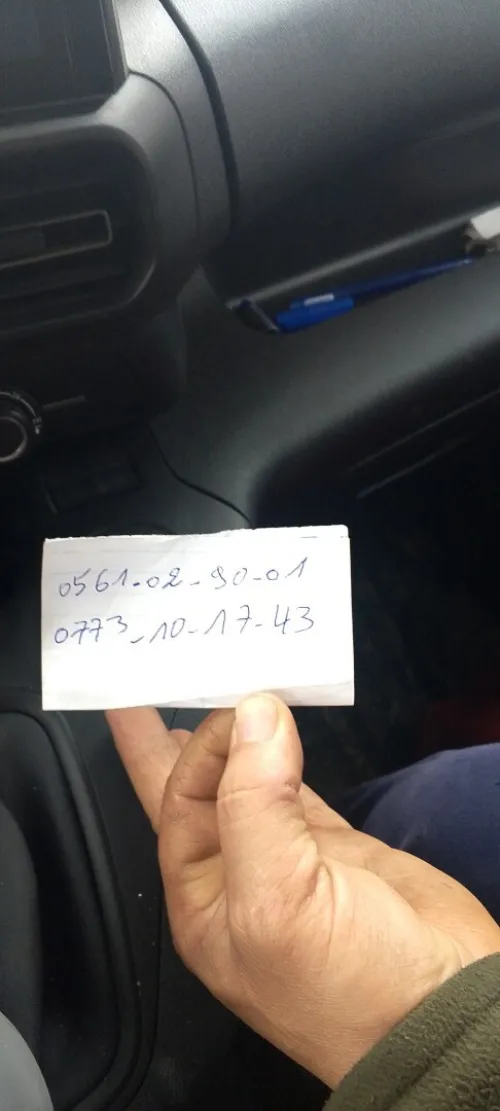 0561-02-90-01
0773-10-17-43